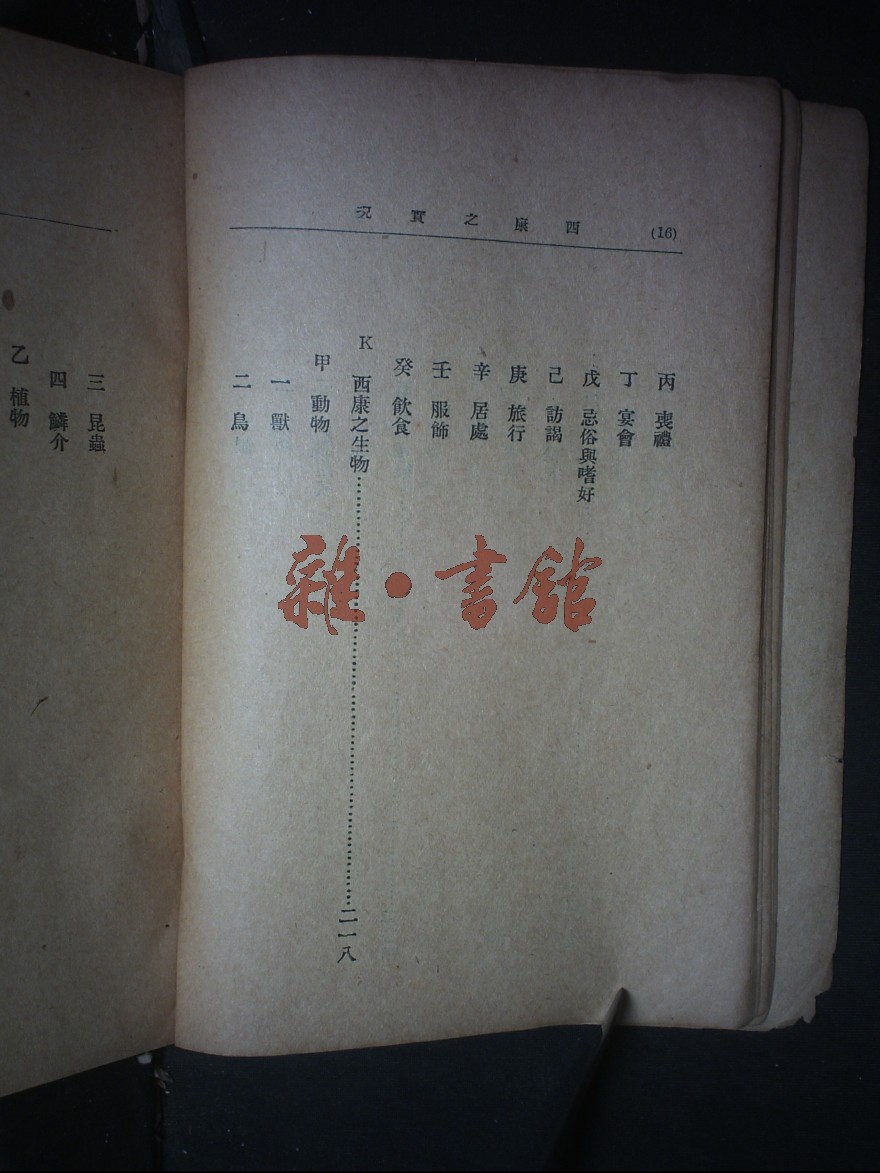 (16) 西康之實況
丙 喪禮
丁 宴會
戊 忌俗與嗜好
己 訪謁
庚 旅行
辛 居處
壬 服飾
癸 飲食
K 西康之生物……二一八
甲 動物
一 獸
二 鳥
三 昆蟲
四 鱗介
乙 植物
雜·書館